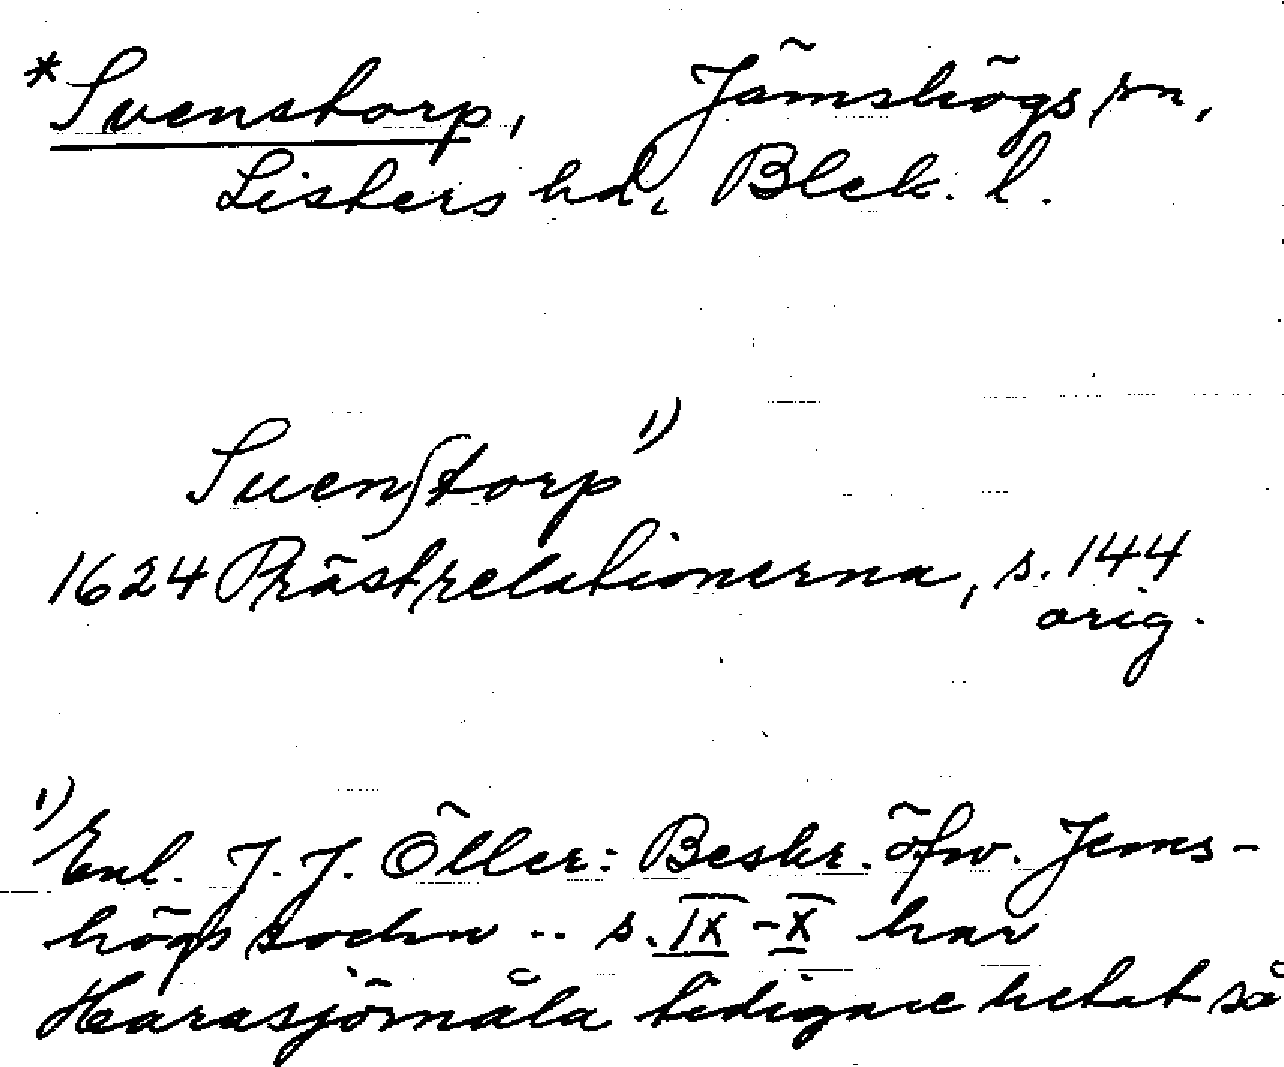 *Svenstorp, Jämshögs sn,
Listers hd, Blek. l.
Suenſtorp 1)
1624 Prästrelationerna, s. 144
orig.
1) Enl. J. J. Öller: Beskr. öfw. Jems-
högs sochn .. s. IX-X har
Harasjömåla tidigare hetat så